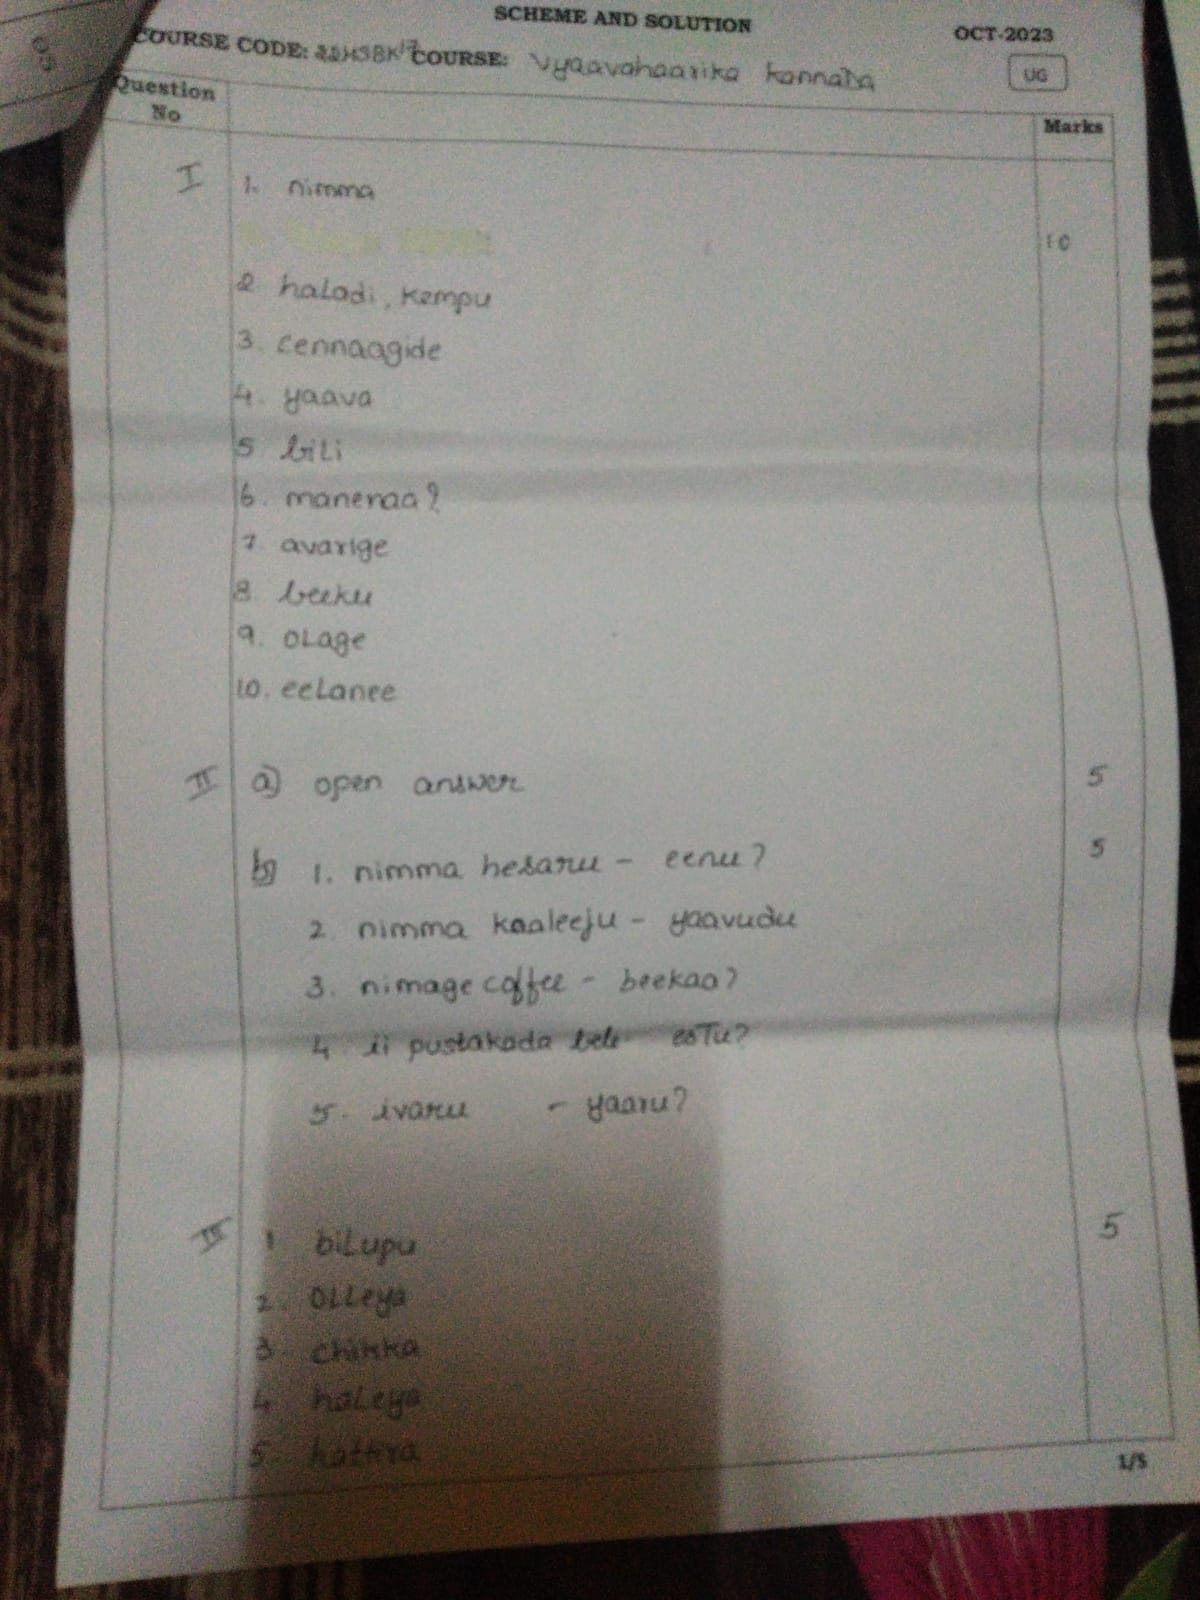 SCHEME AND SOLUTION
OCT-2023
COURSE CODE: 22HSBK17 COURSE: Vyaavahaarika KannaDa
UG
Question No
Marks
I 1. nimma
10
2 haladi, kempu
3. cennaagide
4. yaava
5 biLi
6. manenaa?
7 avarige
8 beeku
9. OLage
10. eeLanee
II a) open answer 5
b) 1. nimma hesaru - eenu? 5
2 nimma kaaleeju - yaavudu
3. nimage coffee - beekaa?
4 ii pustakada bele esTu?
5. ivaru - yaaru?
III 1 biLupu 5
2. OLLeya
3 chikka
4 haLeya
5. hattira
1/5